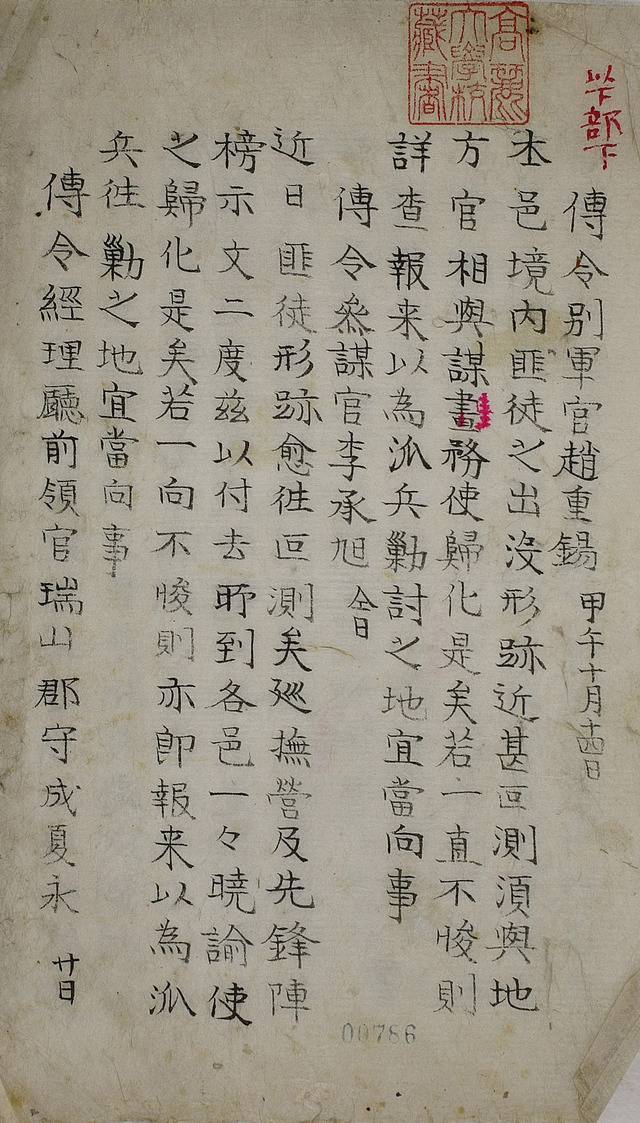 以下部下
高麗大學校藏書
傳令別軍官趙重錫 甲午十月十四日
本邑境內匪徒之出沒形跡近甚叵測須與地
方官相與謀畫務使歸化是矣若一直不悛則
詳查報来以為派兵勦討之地宜當向事
傳令叅謀官李承旭 仝日
近日匪徒形跡愈往叵測矣廵撫營及先鋒陣
榜示文二度玆以付去所到各邑一々曉諭使
之歸化是矣若一向不悛則亦卽報来以為派
兵往勦之地宜當向事
傳令經理廳前領官瑞山郡守成夏永 廿日
00786